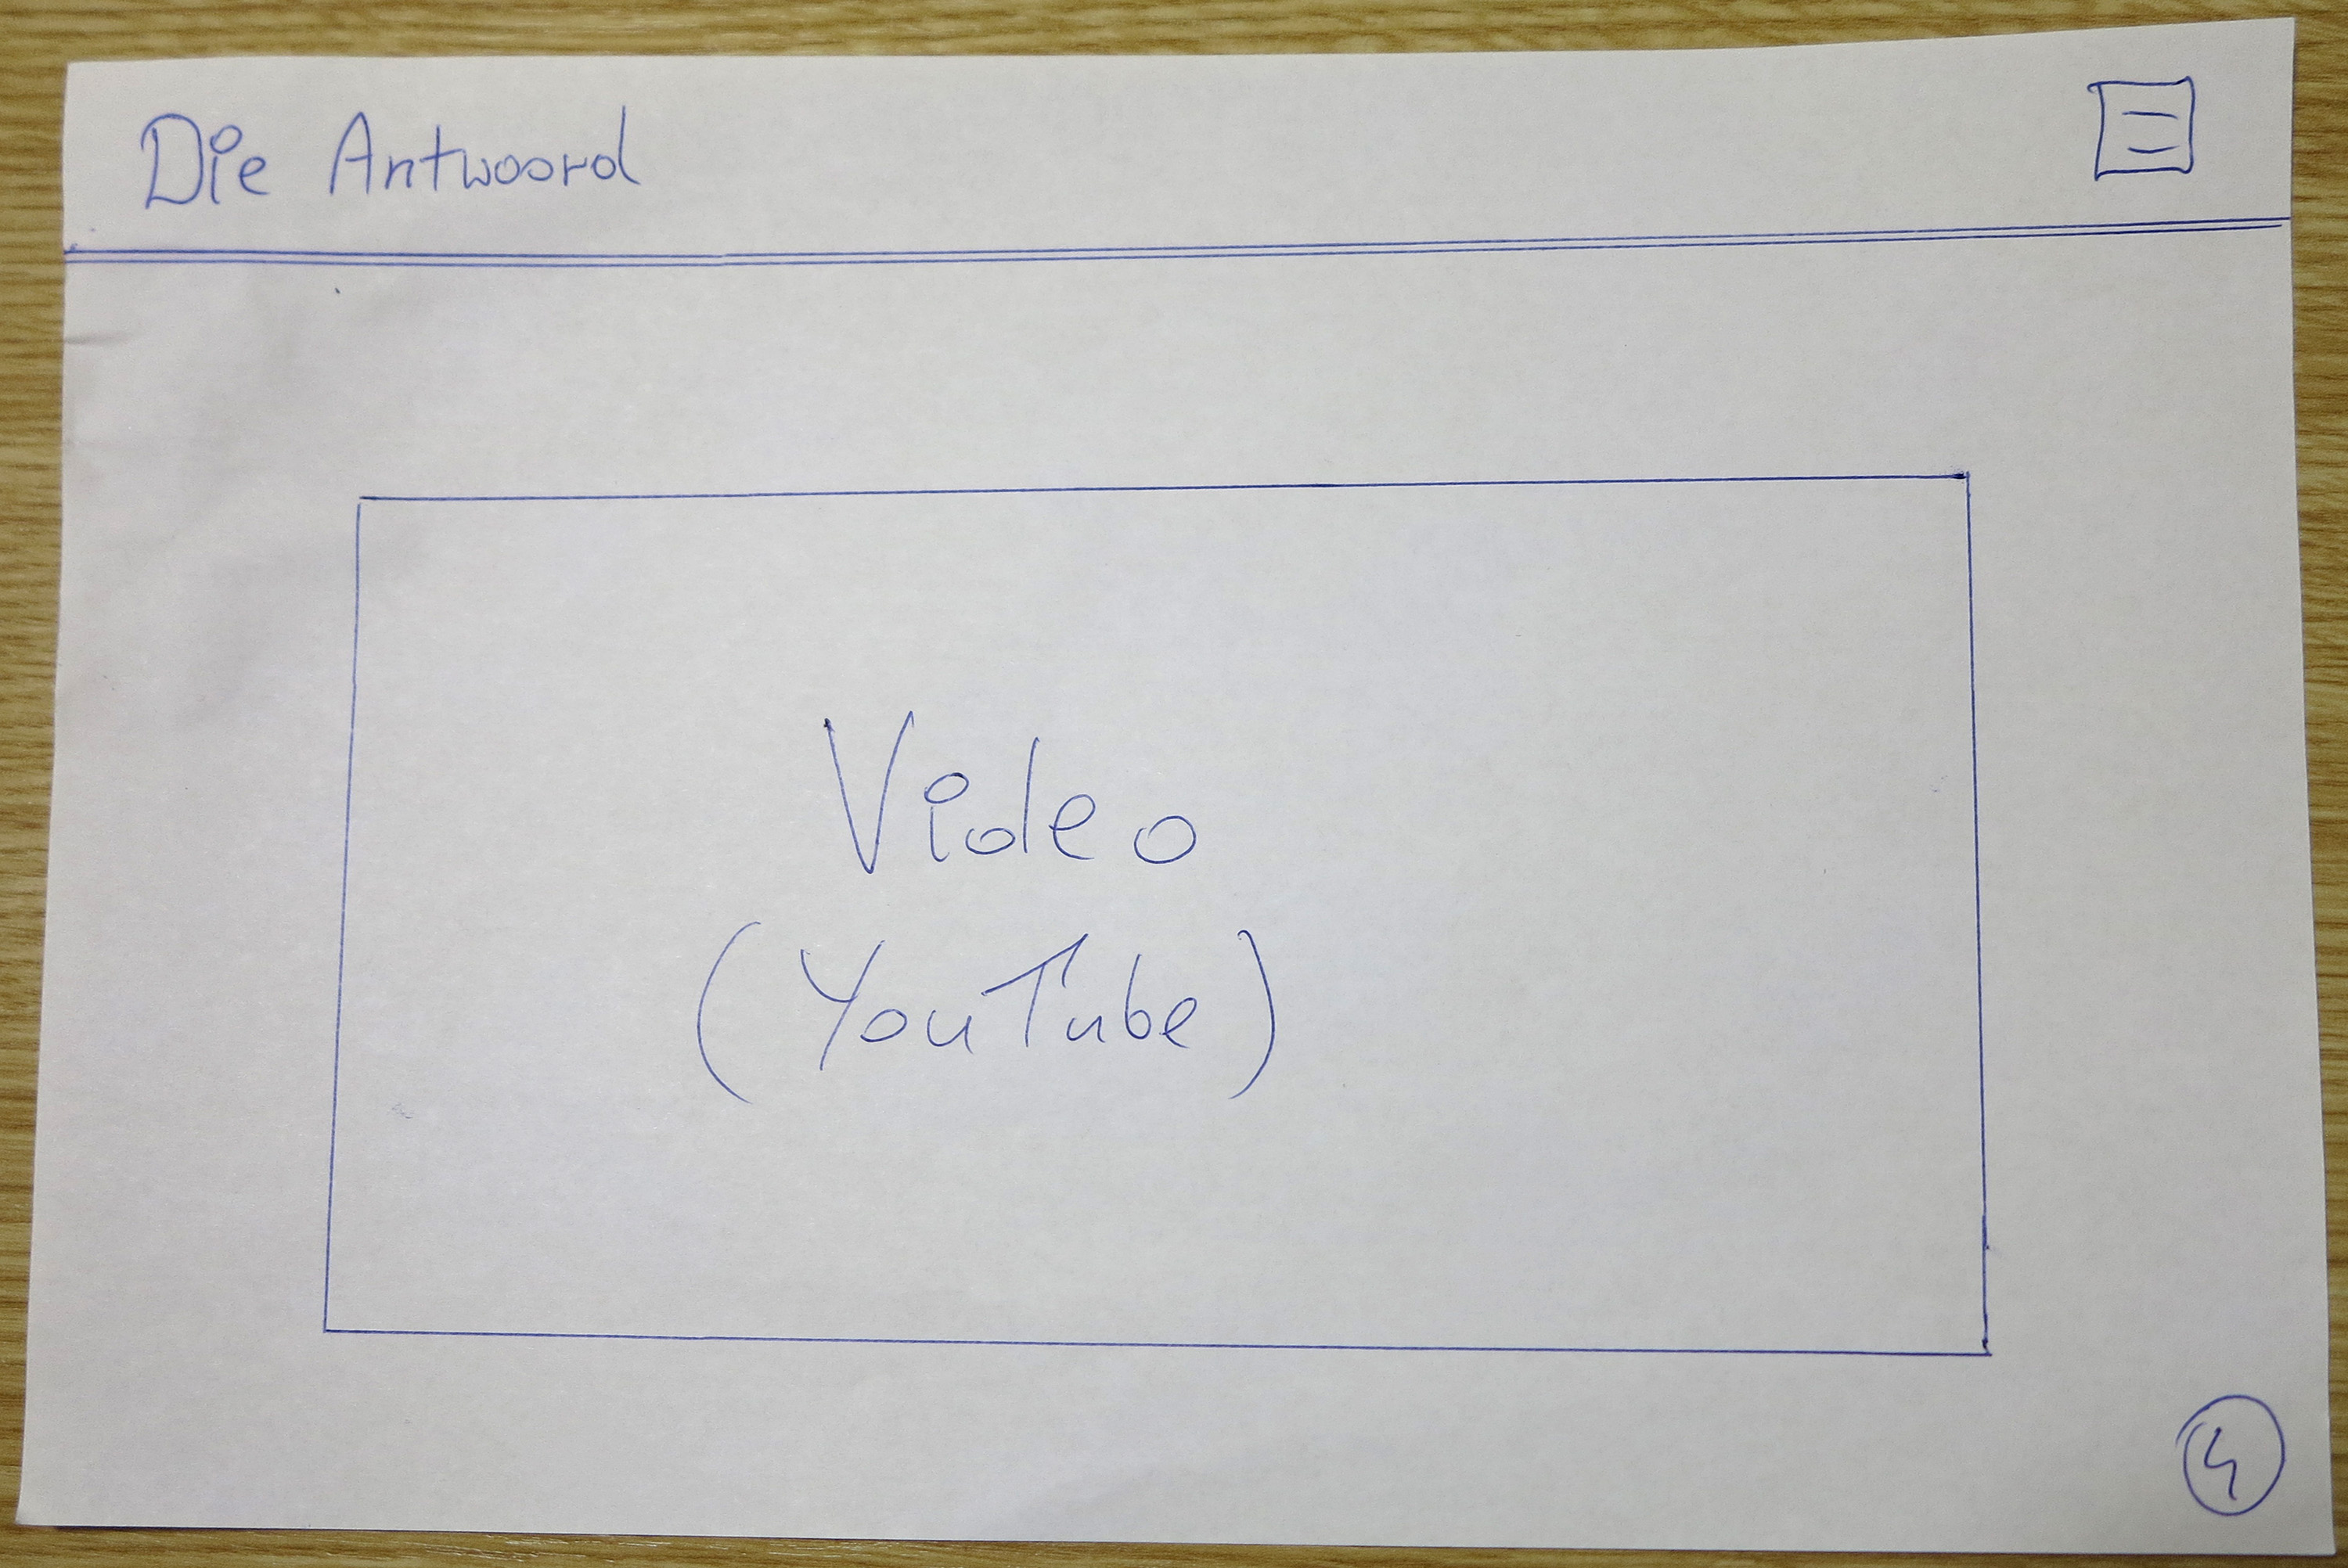 Die Antwoord
Video
(YouTube)
4